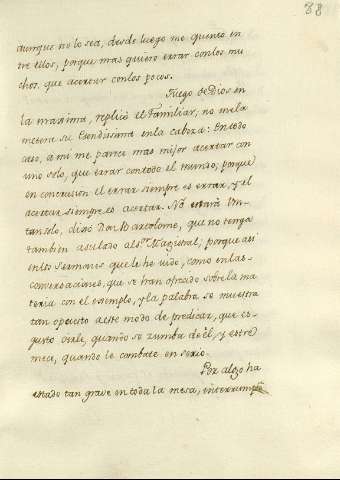 38
aunque no lo sea, desde luego me quento en
tre ellos, porque mas quiero errar con los mu
chos, que acertar con los pocos.
Fuego de Dios en
la maxima, replicò el Familiar, no me la
metera su Eundissima en la cabeza: En todo
caso, a mi me parece mas mijor acertar con
uno solo, que errar con todo el mundo; porque
en concrusion el errar siempre es errar, y el
acertar siempre es acertar. No estarà Vm
tan solo, dixo Don Bartolome, que no tenga
tambien a su lado al Sr. Magistral; porque asi
en los Sermones que le he oido, como en las
conversaciones que se han ofrecido sobre la ma
teria con el exemplo, y la palabra se muestra
tan opuesto a este modo de predicar, que es
gusto oirle, quando se zumba de èl, y estre
mece, quando le combate en serio.
Por algo ha
estado tan grave en toda la mesa, interrumpiò